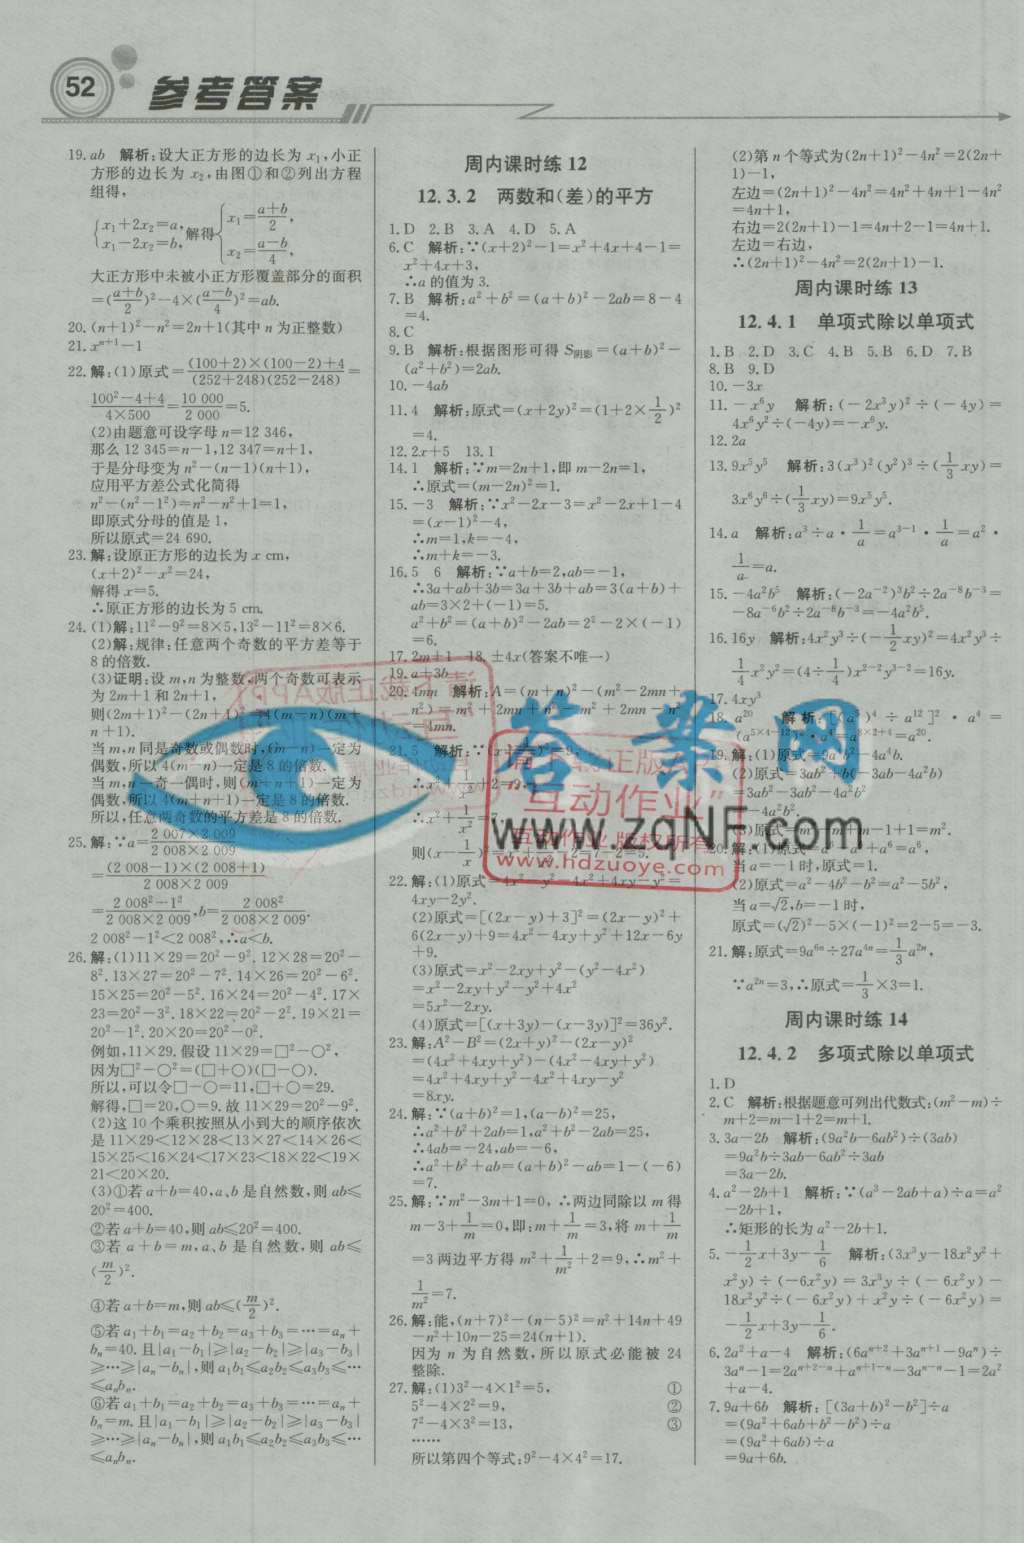 52 参考答案
19. ab 解析:设大正方形的边长为 x₁,小正
方形的边长为 x₂,由图①和②列出方程
组得,
{x₁+2x₂=a, x₁-2x₂=b, 解得{x₁=(a+b)/2, x₂=(a-b)/4,
大正方形中未被小正方形覆盖部分的面积
=((a+b)/2)²-4×((a-b)/4)²=ab.
20. (n+1)²-n²=2n+1(其中 n 为正整数)
21. xⁿ⁺¹-1
22. 解:(1)原式=((100+2)×(100-2)+4)/((252+248)(252-248))=
(100²-4+4)/(4×500)=10 000/2 000=5.
(2)由题意可设字母 n=12 346,
那么 12 345=n-1,12 347=n+1,
于是分母变为 n²-(n-1)(n+1),
应用平方差公式化简得
n²-(n²-1²)=n²-n²+1=1,
即原式分母的值是 1,
所以原式=24 690.
23. 解:设原正方形的边长为 x cm,
(x+2)²-x²=24,
解得 x=5.
∴原正方形的边长为 5 cm.
24. (1)解:11²-9²=8×5,13²-11²=8×6.
(2)解:规律:任意两个奇数的平方差等于
8 的倍数.
(3)证明:设 m,n 为整数,两个奇数可表示
为 2m+1 和 2n+1,
则(2m+1)²-(2n+1)²=4(m-n)(m+
n+1).
当 m,n 同是奇数或偶数时,(m-n)一定为
偶数,所以 4(m-n)一定是 8 的倍数.
当 m,n 一奇一偶时,则(m+n+1)一定为
偶数,所以 4(m+n+1)一定是 8 的倍数.
所以,任意两奇数的平方差是 8 的倍数.
25. 解:∵a=(2 007×2 009)/(2 008×2 009)
=((2 008-1)×(2 008+1))/(2 008×2 009)
=(2 008²-1²)/(2 008×2 009),b=2 008²/(2 008×2 009).
2 008²-1²<2 008²,∴a<b.
26. 解:(1)11×29=20²-9². 12×28=20²-
8². 13×27=20²-7². 14×26=20²-6².
15×25=20²-5². 16×24=20²-4². 17×
23=20²-3². 18×22=20²-2². 19×21=
20²-1². 20×20=20²-0².
例如,11×29. 假设 11×29=□²-○²,
因为□²-○²=(□+○)(□-○).
所以,可以令□-○=11,□+○=29.
解得,□=20,○=9. 故 11×29=20²-9².
(2)这 10 个乘积按照从小到大的顺序依次
是 11×29<12×28<13×27<14×26<
15×25<16×24<17×23<18×22<19×
21<20×20.
(3)①若 a+b=40,a、b 是自然数,则 ab≤
20²=400.
②若 a+b=40,则 ab≤20²=400.
③若 a+b=m,a、b 是自然数,则 ab≤
(m/2)².
④若 a+b=m,则 ab≤(m/2)².
⑤若 a₁+b₁=a₂+b₂=a₃+b₃=…=aₙ+
bₙ=40. 且|a₁-b₁|≥|a₂-b₂|≥|a₃-b₃|
≥…≥|aₙ-bₙ|,则 a₁b₁≤a₂b₂≤a₃b₃≤…
≤aₙbₙ.
⑥若 a₁+b₁=a₂+b₂=a₃+b₃=…=aₙ+
bₙ=m. 且|a₁-b₁|≥|a₂-b₂|≥|a₃-b₃|
≥…≥|aₙ-bₙ|,则 a₁b₁≤a₂b₂≤a₃b₃≤…
≤aₙbₙ.
周内课时练 12
12.3.2 两数和(差)的平方
1. D 2. B 3. A 4. D 5. A
6. C 解析:∵(x+2)²-1=x²+4x+4-1=
x²+4x+3,
∴a 的值为 3.
7. B 解析:a²+b²=(a+b)²-2ab=8-4
=4.
8. C
9. B 解析:根据图形可得 S阴影=(a+b)²-
(a²+b²)=2ab.
10. -4ab
11. 4 解析:原式=(x+2y)²=(1+2×1/2)²
=4.
12. 2x+5 13. 1
14. 1 解析:∵m=2n+1,即 m-2n=1,
∴原式=(m-2n)²=1.
15. -3 解析:∵x²-2x-3=x²-2x+1-4
=(x-1)²-4,
∴m=1,k=-4,
∴m+k=-3.
16. 5 6 解析:∵a+b=2,ab=-1,
∴3a+ab+3b=3a+3b+ab=3(a+b)+
ab=3×2+(-1)=5.
a²+b²=(a+b)²-2ab=2²-2×(-1)
=6.
17. 2m+1 18. ±4x(答案不唯一)
19. a+3b
20. 4mn 解析:A=(m+n)²-(m²-2mn+
n²)=m²+2mn+n²-m²+2mn-n²
=4mn.
21. 5 解析:∵(x+1/x)²=9,
∴x²+1/x²+2=9,
∴x²+1/x²=7,
则(x-1/x)²=x²+1/x²-2=7-2=5.
22. 解:(1)原式=4x²-y²-4x²+4xy-y²=
4xy-2y².
(2)原式=[(2x-y)+3]²=(2x-y)²+
6(2x-y)+9=4x²-4xy+y²+12x-6y
+9.
(3)原式=x²-2xy+y²-(y²-4x²)
=x²-2xy+y²-y²+4x²
=5x²-2xy.
(4)原式=[(x+3y)-(x-3y)]²=36y².
23. 解:A²-B²=(2x+y)²-(2x-y)²
=(4x²+4xy+y²)-(4x²-4xy+y²)
=4x²+4xy+y²-4x²+4xy-y²
=8xy.
24. 解:∵(a+b)²=1,(a-b)²=25,
∴a²+b²+2ab=1,a²+b²-2ab=25,
∴4ab=-24,ab=-6,
∴a²+b²+ab=(a+b)²-ab=1-(-6)
=7.
25. 解:∵m²-3m+1=0,∴两边同除以 m 得
m-3+1/m=0,即:m+1/m=3,将 m+1/m
=3 两边平方得 m²+1/m²+2=9,∴m²+
1/m²=7.
26. 解:能,(n+7)²-(n-5)²=n²+14n+49
-n²+10n-25=24(n+1).
因为 n 为自然数,所以原式必能被 24
整除.
27. 解:(1)3²-4×1²=5, ①
5²-4×2²=9, ②
7²-4×3²=13, ③
……
所以第四个等式:9²-4×4²=17.
(2)第 n 个等式为(2n+1)²-4n²=2(2n+
1)-1,
左边=(2n+1)²-4n²=4n²+4n+1-4n²
=4n+1,
右边=2(2n+1)-1=4n+2-1=4n+1.
左边=右边,
∴(2n+1)²-4n²=2(2n+1)-1.
周内课时练 13
12.4.1 单项式除以单项式
1. B 2. D 3. C 4. B 5. B 6. D 7. B
8. B 9. D
10. -3x
11. -x⁶y 解析:(-2x³y)²÷(-4y)=
4x⁶y²÷(-4y)=-x⁶y.
12. 2a
13. 9x⁵y⁵ 解析:3(x³)²(y²)³÷(1/3xy)=
3x⁶y⁶÷(1/3xy)=9x⁵y⁵.
14. a 解析:a³÷a·1/a=a³⁻¹·1/a=a²·
1/a=a.
15. -4a²b⁵ 解析:(-2a⁻²)³b²÷2a⁻⁸b⁻³=
-8a⁻⁶b²÷2a⁻⁸b⁻³=-4a²b⁵.
16. 16y 解析:4x²y³÷(-1/2xy)²=4x²y³÷
1/4x²y²=(4÷1/4)x²⁻²y³⁻²=16y.
17. 4xy³
18. a²⁰ 解析:[(a⁵)⁴÷a¹²]²·a⁴=
(a⁵ˣ⁴⁻¹²)²·a⁴=a²⁰.
19. 解:(1)原式=9a²b²·4a²b⁴
(2)原式=3ab²+b(-3ab-4a²b)
=3ab²-3ab²-4a²b²
=-4a²b².
(3)原式=m²+m-m-1+1=m².
20. 解:(1)原式=a⁶+a⁶=a⁶,
当 a=-1 时,原式=1.
(2)原式=a²-4b²-b²=a²-5b²,
当 a=√2,b=-1 时,
原式=(√2)²-5×(-1)²=2-5=-3.
21. 解:原式=9a⁶ⁿ÷27a⁴ⁿ=1/3a²ⁿ,
∵a²ⁿ=3,∴原式=1/3×3=1.
周内课时练 14
12.4.2 多项式除以单项式
1. D
2. C 解析:根据题意可列出代数式:(m²-m)÷
m+2=m-1+2=m+1.
3. 3a-2b 解析:(9a²b-6ab²)÷(3ab)
=9a²b÷3ab-6ab²÷3ab
=3a-2b.
4. a²-2b+1 解析:∵(a³-2ab+a)÷a=a²
-2b+1,
∴矩形的长为 a²-2b+1.
5. -1/2x+3y-1/6 解析:(3x³y-18x²y²+
x²y)÷(-6x²y)=3x³y÷(-6x²y)-
18x²y²÷(-6x²y)+x²y÷(-6x²y)=
-1/2x+3y-1/6.
6. 2a²+a-4 解析:(6aⁿ⁺²+3aⁿ⁺¹-9aⁿ)÷
3aⁿ-1=2aⁿ⁺²⁻ⁿ+aⁿ⁺¹⁻ⁿ-3aⁿ⁻ⁿ-1=2a²
+a-4.
7. 9a+6b 解析:[(3a+b)²-b²]÷a
=(9a²+6ab+b²-b²)÷a
=(9a²+6ab)÷a
=9a+6b.
答案网
www.zqNF.com
互动作业
http://www.hdzuoye.com